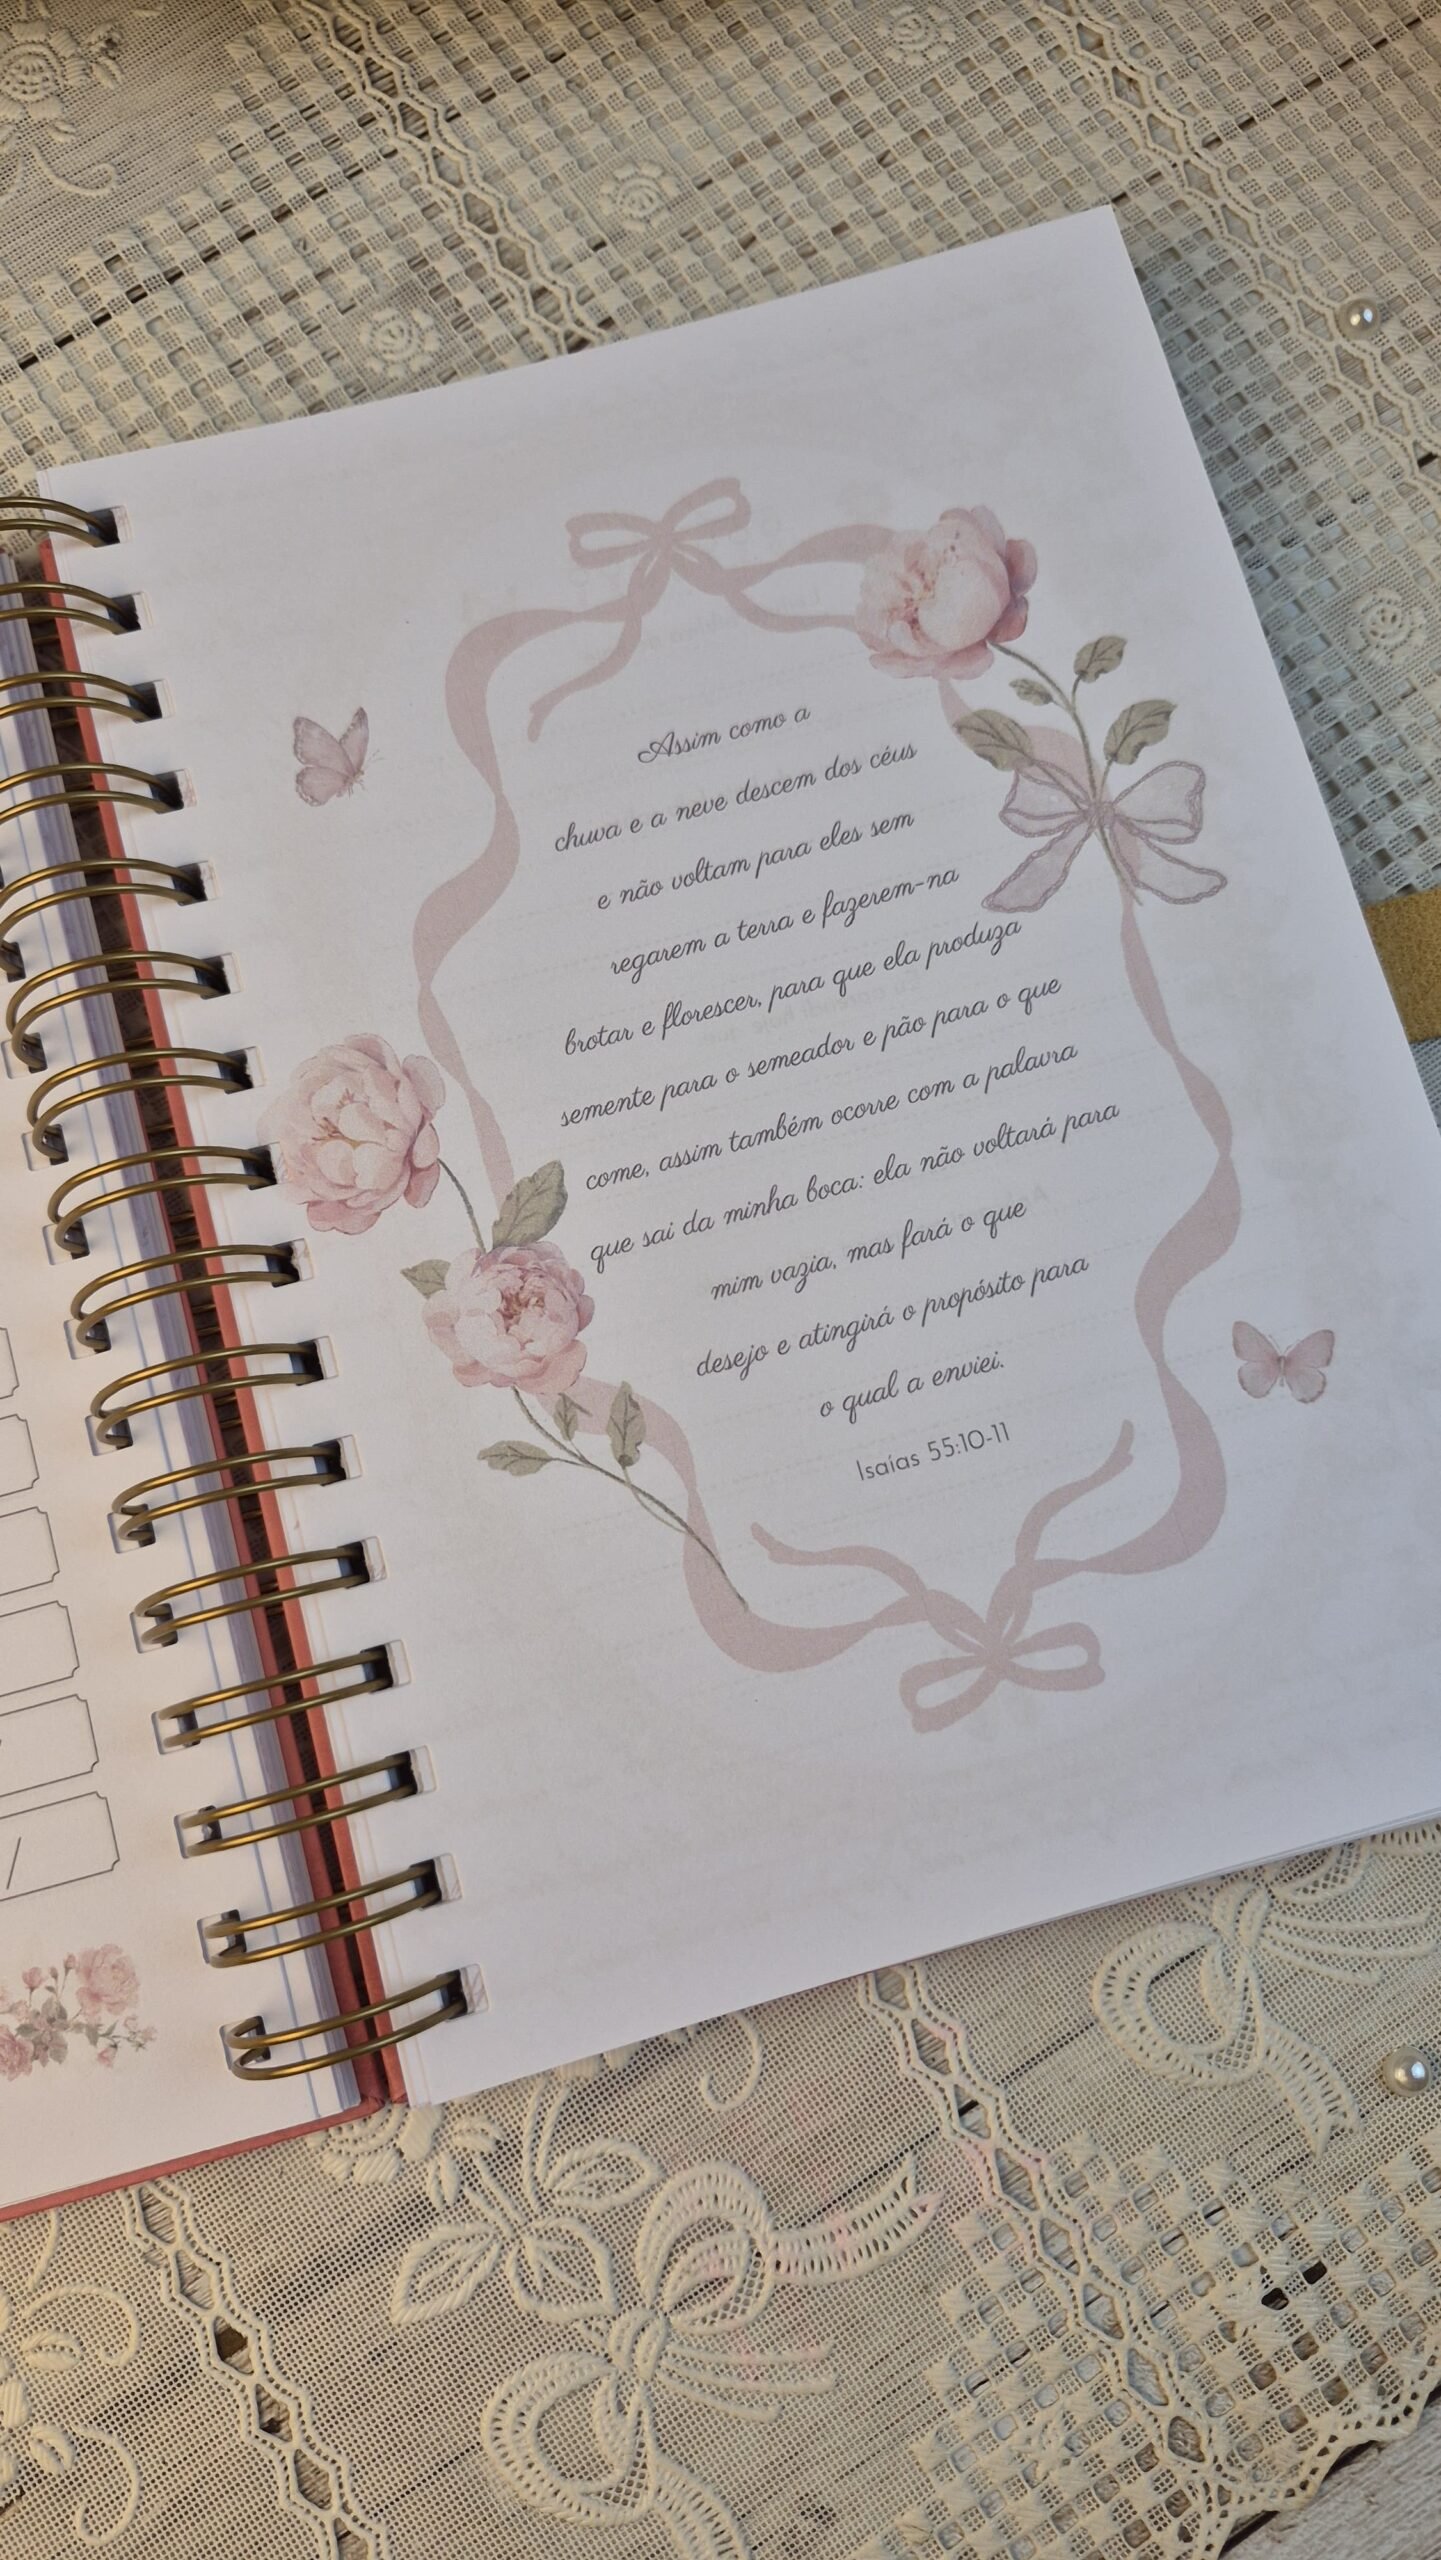 Assim como a
chuva e a neve descem dos céus
e não voltam para eles sem
regarem a terra e fazerem-na
brotar e florescer, para que ela produza
semente para o semeador e pão para o que
come, assim também ocorre com a palavra
que sai da minha boca: ela não voltará para
mim vazia, mas fará o que
desejo e atingirá o propósito para
o qual a enviei.
Isaías 55:10-11